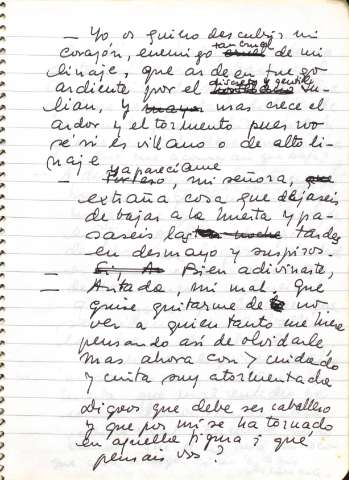 — Yo os quiero descubrir mi
corazón, enemigo tan cruel de mi
linaje, que arde en fuego
ardiente por el discreto y gentil Ju-
lian, y mas crece el
ardor y el tormento pues no
se si es villano o de alto li-
naje
— ya parecíame, mi señora,
extraña cosa que dejaseis
de bajar a la huerta y pa-
saseis las tardes
en desmayo y suspiros.
— Bien adivinaste,
— Antada, mi mal. que
quise quitarme de no
ver a quien tanto me
pensando así de olvidarle
mas ahora con > cuidado
y cuita soy atormentada
digoos que debe ser caballero
y que por mi se ha tornado
en aquella figura ¿ qué
pensais vos?